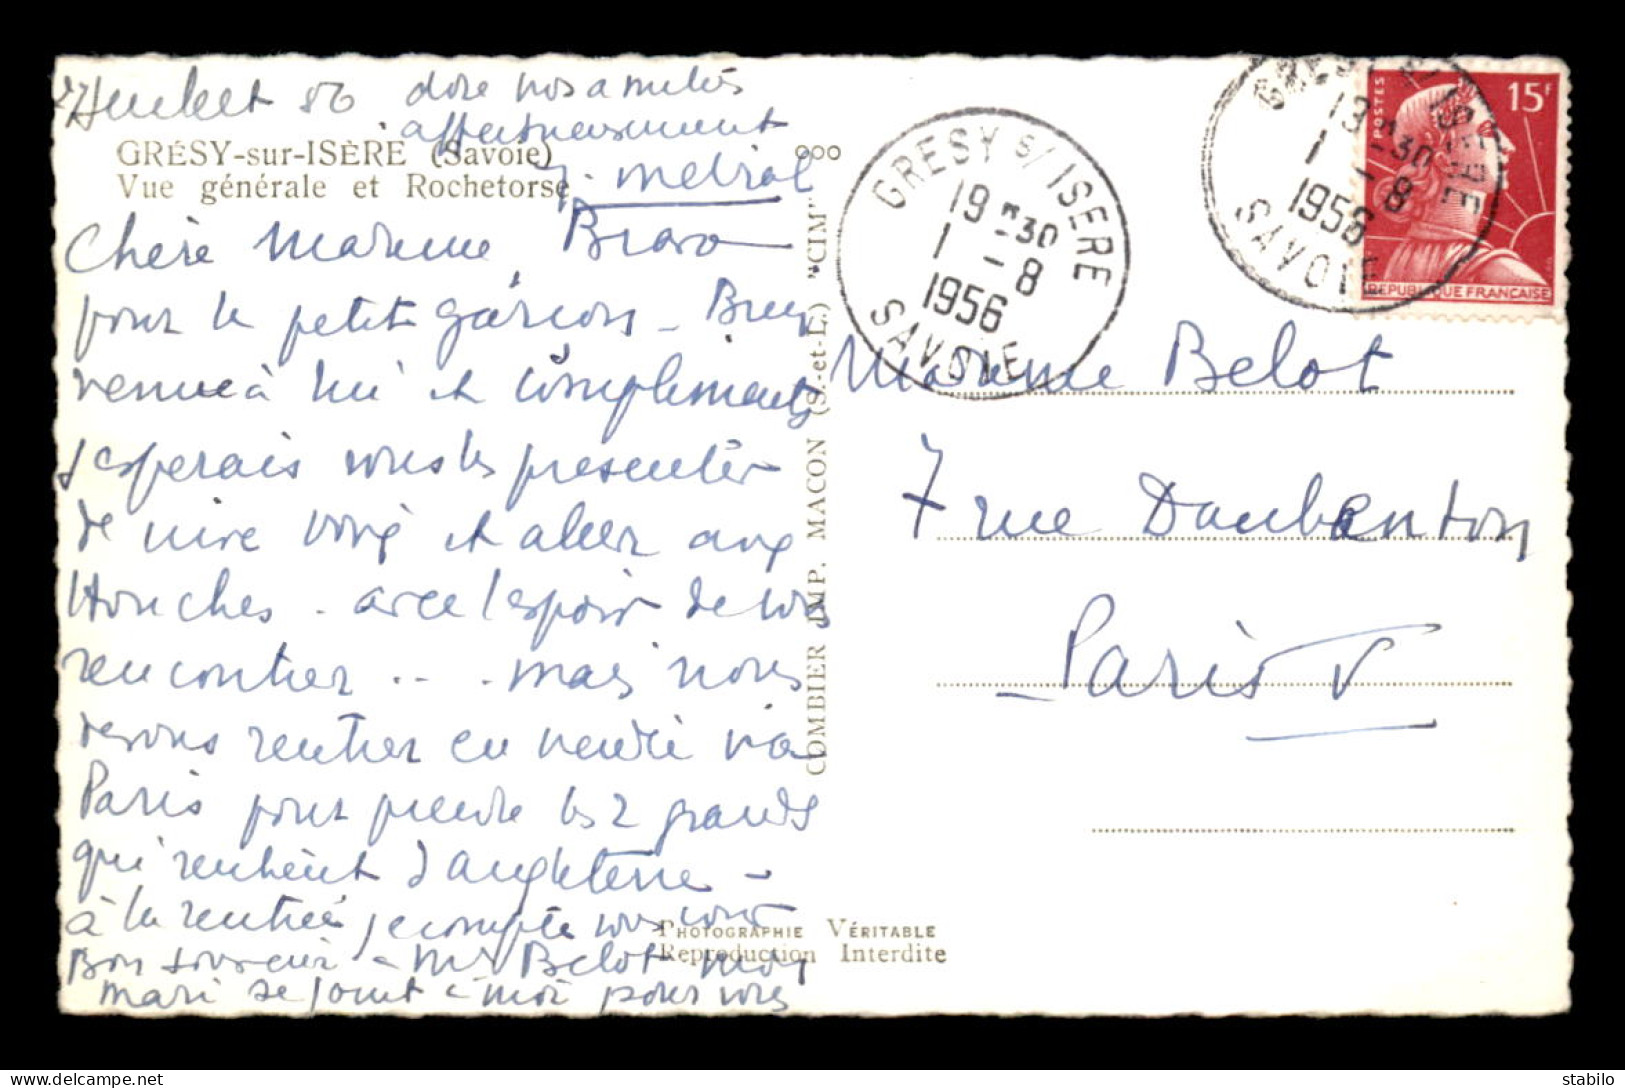 56 dire nos amitiés
affectueusement
GRÉSY-sur-ISÈRE (Savoie)
Vue générale et Rochetorse
Chère Madame, Bravo
pour le petit garçon - Bien
venue à lui et compliments
J'esperais vous les presenter
de vive voix et aller aux
Houches - avec l'espoir de vous
rencontrer .. . mais nous
devons rentrer en via
Paris pour prendre les 2 grands
qui rentrent d'angleterre -
à la rentrée je compte vous voir
Bon souvenir à Mr Belot mon
mari se joint à moi pour vous
COMBIER IMP. MACON (S.-et-L.) "CIM"
GRESY S/ ISERE
19 H 30
1 - 8
1956
SAVOIE
GRESY S/ ISERE
13 H 30
1 - 8
1956
SAVOIE
POSTES
15F
REPUBLIQUE FRANCAISE
Madame Belot
7 rue Daubenton
- Paris V
PHOTOGRAPHIE VÉRITABLE
Reproduction Interdite
stabilo